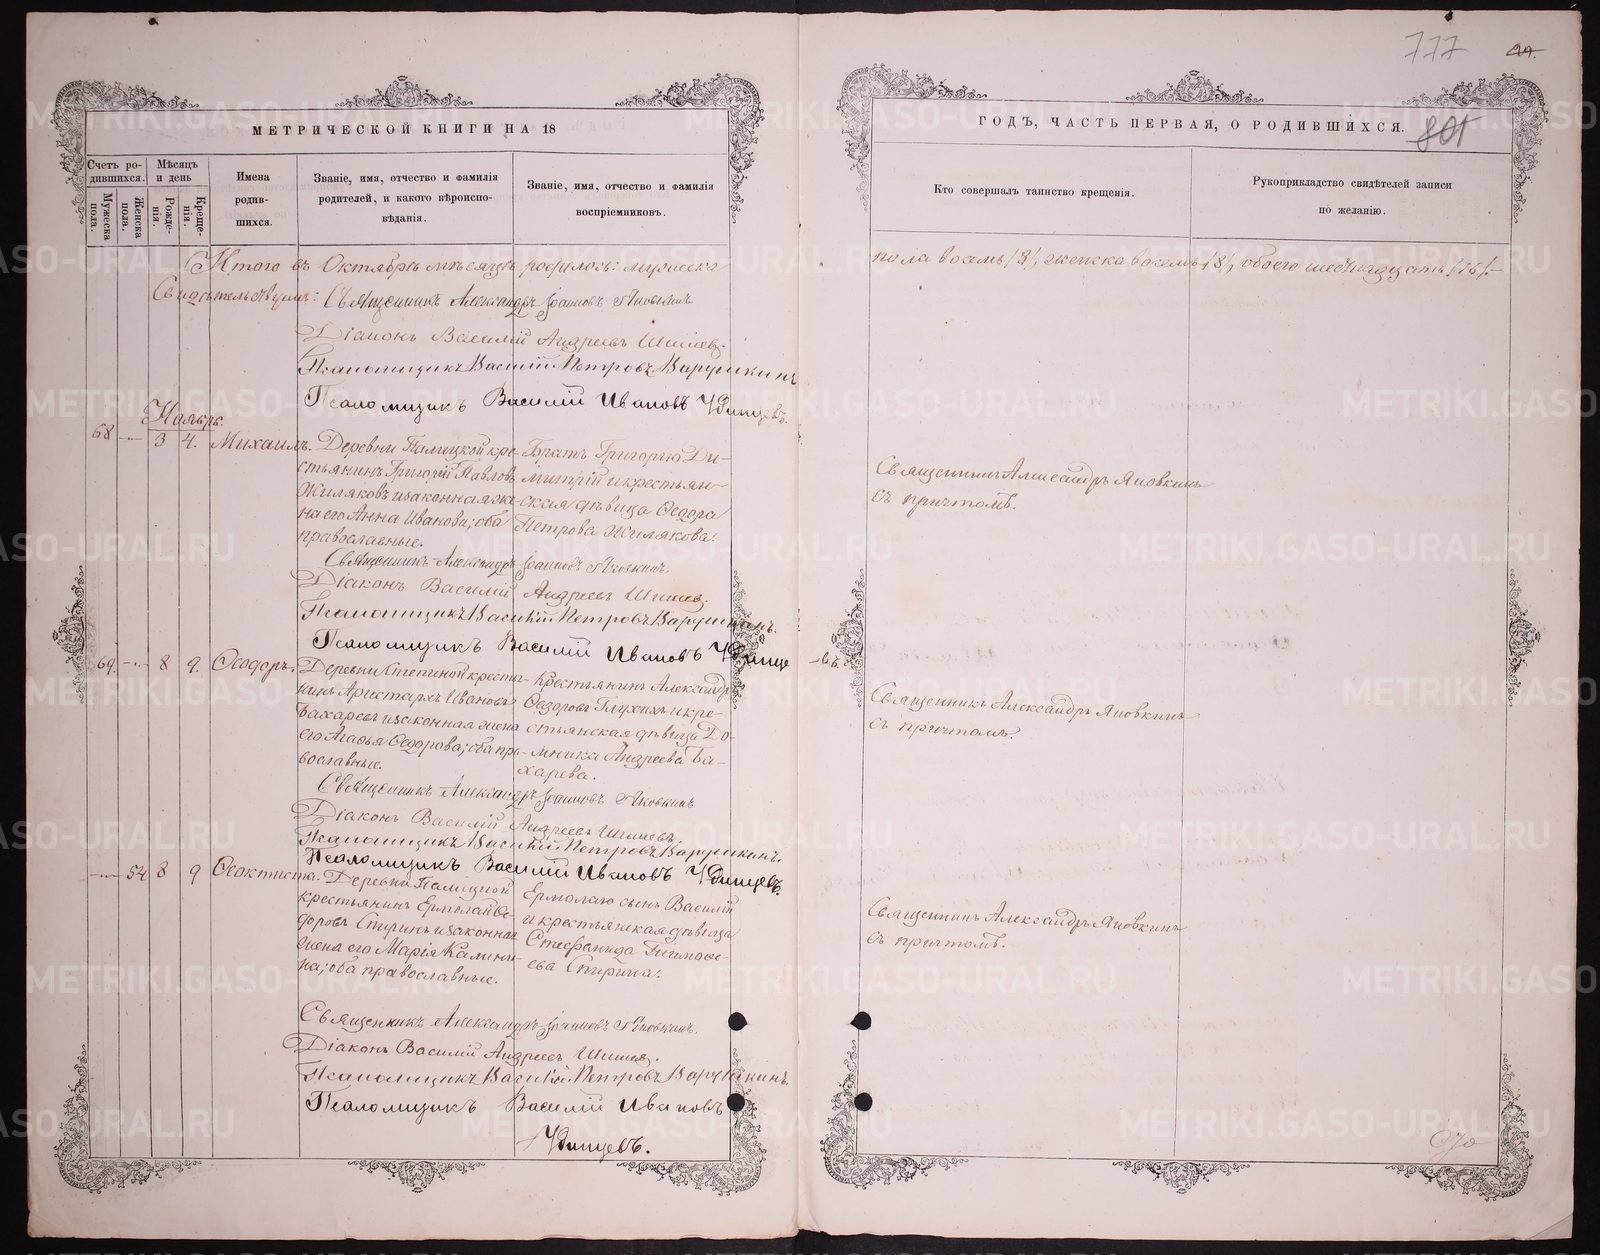 777
99.
МЕТРИЧЕСКОЙ КНИГИ НА 18
ГОДЪ, ЧАСТЬ ПЕРВАЯ, О РОДИВШИХСЯ.
801
Счетъ ро-
дившихся.
Мѣсяцъ
и день
Мужеска
пола.
Женска
пола.
Рожде-
нія.
Креще-
нія.
Имена
родив-
шихся.
Званіе, имя, отчество и фамилія
родителей, и какого вѣроиспо-
вѣданія.
Званіе, имя, отчество и фамилія
воспріемниковъ.
Кто совершалъ таинство крещенія.
Рукоприкладство свидѣтелей записи
по желанію.
Итого въ Октябрѣ мѣсяцѣ родилось: мужеска
пола восемь /8/, женска восемь /8/, обоего шестнадцать /16/.
Свидѣтельствуемъ: Священникъ Александръ Іоанновъ Яновкинъ
Діаконъ Василій Андреевъ Шишевъ.
Псаломщикъ Василій Петровъ Варушкинъ
Псаломщикъ Василій Ивановъ Удинцевъ.
Ноябрь.
68 3 4. Михаилъ.
Деревни Палицкой кре-
стьянинъ Григорій Павловъ
Жиляковъ и законная же-
на его Анна Иванова; оба
православные.
Братъ Григорію Ди-
митрій и крестьян-
ская дѣвица Ѳедора
Петрова Жилякова.
Священникъ Александръ Яновкинъ
съ причтомъ.
Священникъ Александръ Іоанновъ Яновкинъ.
Діаконъ Василій Андреевъ Шишевъ.
Псаломщикъ Василій Петровъ Варушкинъ.
Псаломщикъ Василій Ивановъ Удинце
-въ.
69. 8 9. Ѳеодоръ.
Деревни Степиной крестья-
нинъ Аристархъ Ивановъ
Бахаревъ и законная жена
его Агафья Ѳедорова; оба пра-
вославные.
Крестьянинъ Александръ
Ѳедоровъ Глухихъ и кре-
стьянская дѣвица До-
мника Андреева Ба-
харева.
Священникъ Александръ Яновкинъ
съ причтомъ.
Священникъ Александръ Іоанновъ Яновкинъ.
Діаконъ Василій Андреевъ Шишевъ.
Псаломщикъ Василій Петровъ Варушкинъ.
Псаломщикъ Василій Ивановъ Удинцевъ.
54 8 9 Ѳеоктиста.
Деревни Палицкой
крестьянинъ Ермолай Ѳе-
доровъ Спиринъ и законная
жена его Марія Калини-
на; оба православные.
Ермолаю сынъ Василій
и крестьянская дѣвица
Стефанида Тимоѳе-
ева Спирина.
Священникъ Александръ Яновкинъ
съ причтомъ.
Священникъ Александръ Іоанновъ Яновкинъ.
Діаконъ Василій Андреевъ Шишевъ.
Псаломщикъ Василій Петровъ Варушкинъ.
Псаломщикъ Василій Ивановъ
Удинцевъ.
METRIKI.GASO-URAL.RU